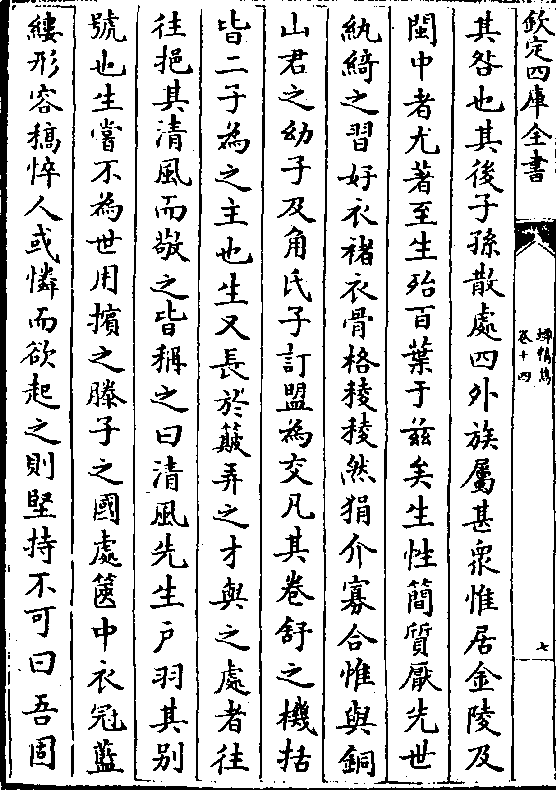 欽定四庫全書
蟫精雋
卷十四
七
其咎也其後子孫散處四外族屬甚衆惟居金陵及
閩中者尤著至生殆百葉于兹矣生性簡質厭先世
紈綺之習好衣褚衣骨格稜稜然狷介寡合惟與銅
山君之幼子及角氏子訂盟為交凡其卷舒之機括
皆二子為之主也生又長於簸弄之才與之處者往
往挹其清風而敬之皆稱之曰清風先生戸羽其别
號也生嘗不為世用擯之縢子之國處篋中衣冠藍
縷形容稿悴人或憐而欲起之則堅持不可曰吾固